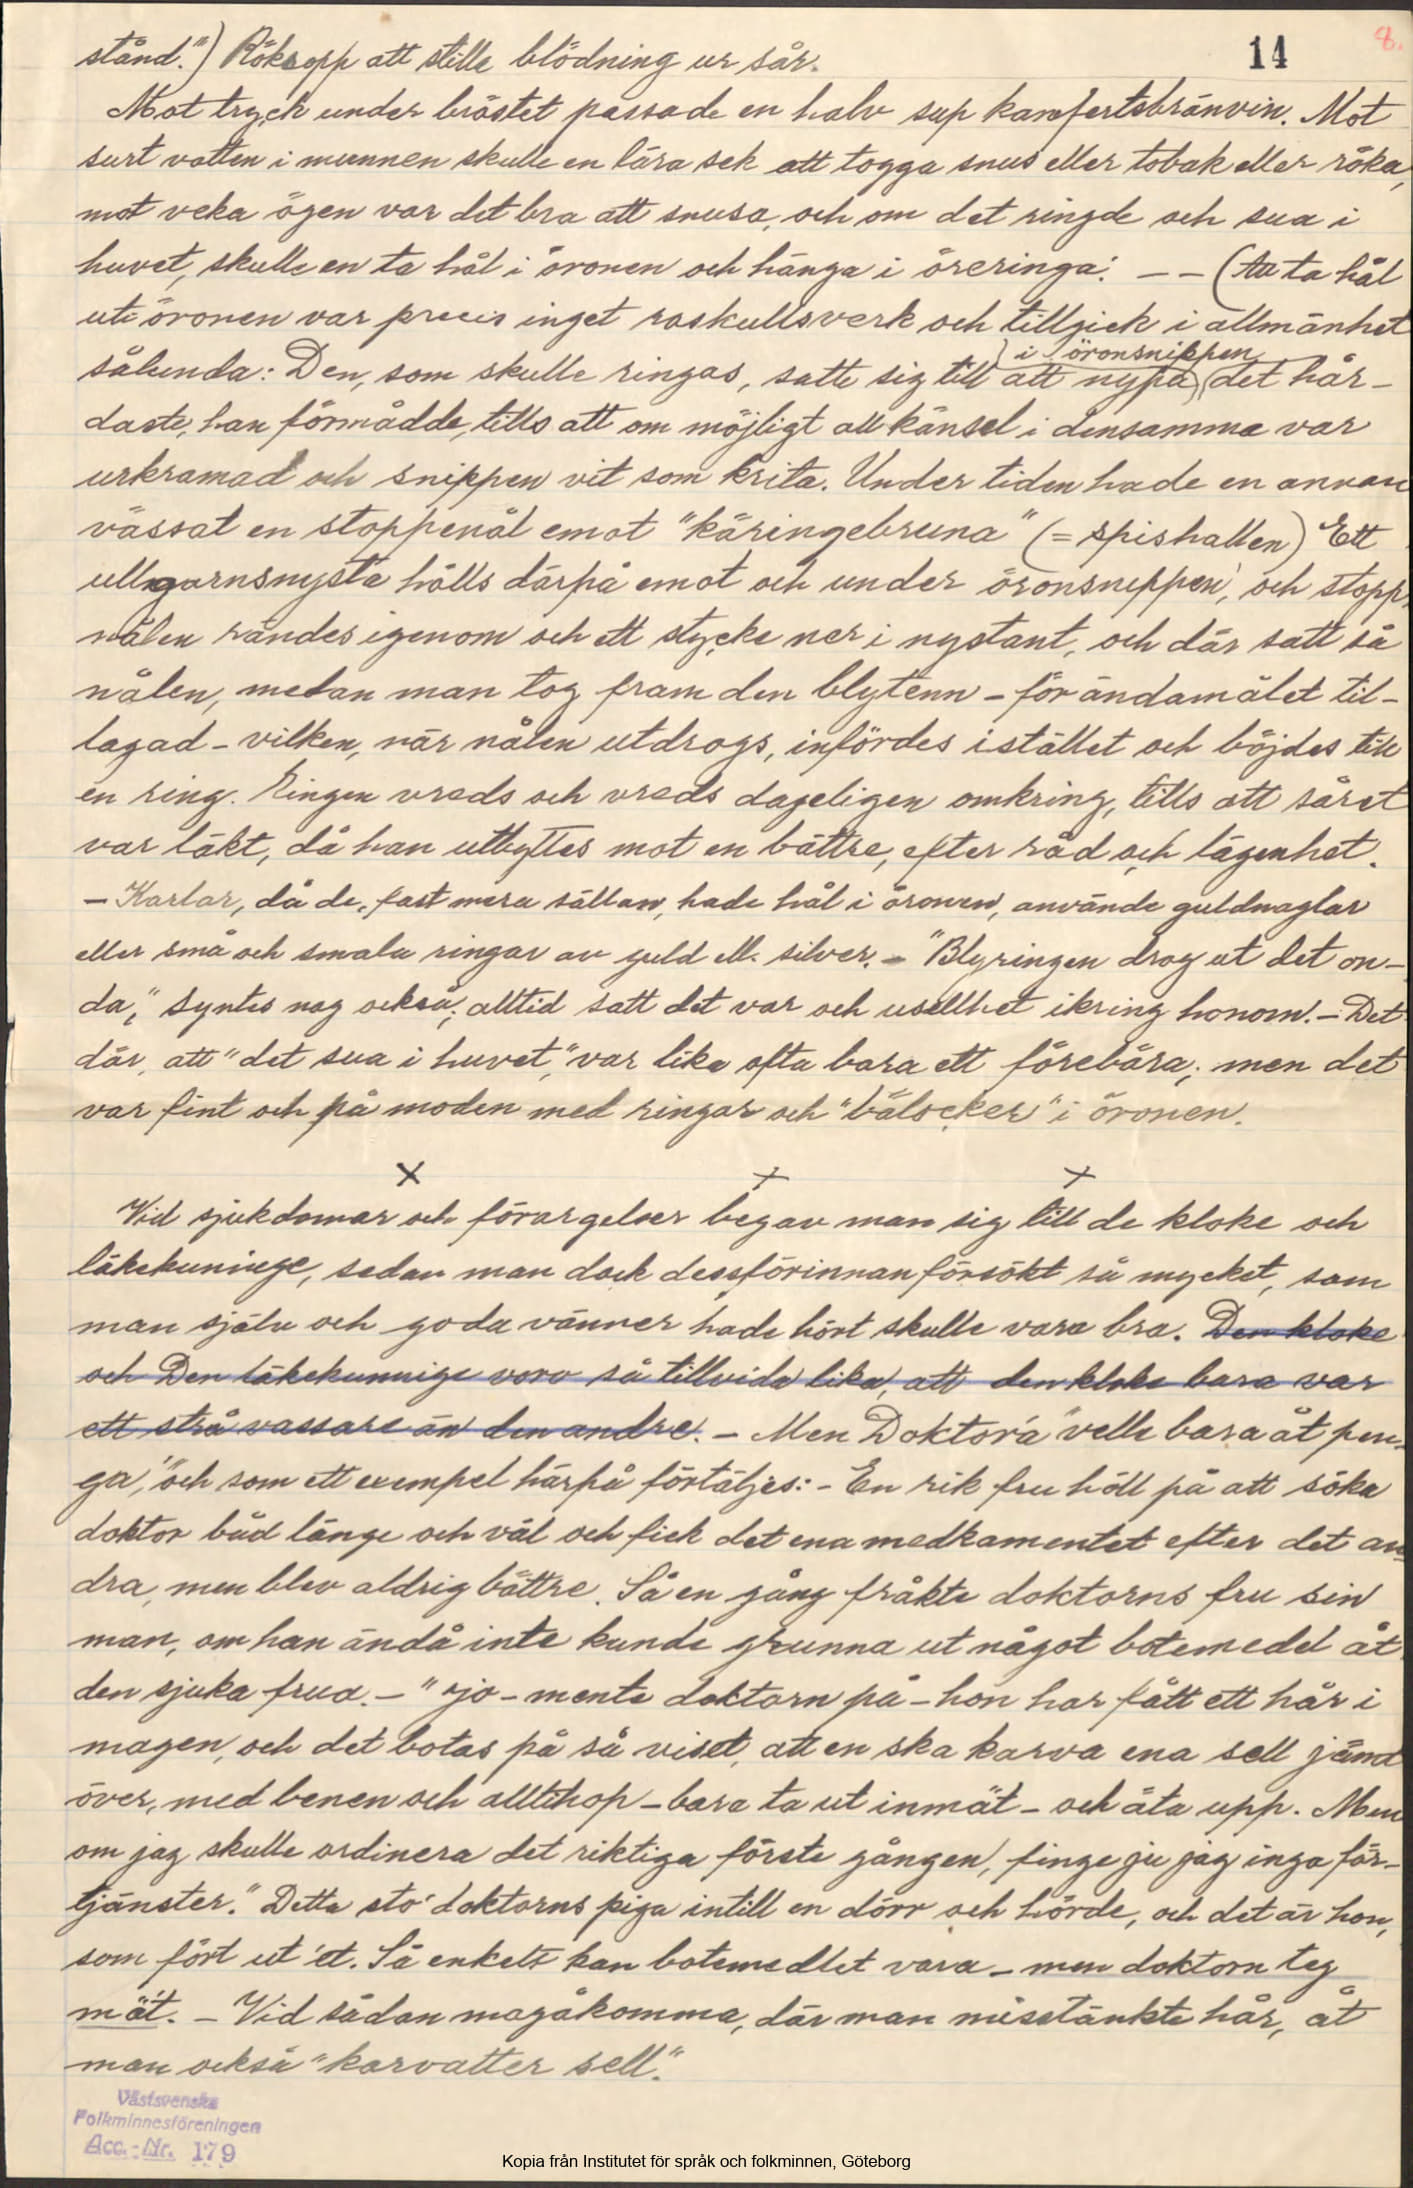 14
8.
stånd.") Röksopp att stille blödning ur sår.
Mot tryck under bröstet passade en halv sup kamfertsbränvin. Mot
surt vatten i munnen skulle en lära sek att togga snus eller tobak eller röka,
mot veka ögen var det bra att snusa, och om det ringde och sua i
huvet, skulle en ta hål i öronen och hänga i öreringa. — — (Att ta hål
uti öronen var precis inget raskullsverk och tillgick i allmänhet
i öronsnippen
sålunda: Den, som skulle ringas, satte sig till att nypa det hår-
daste, han förmådde, tills att om möjligt all känsel i densamma var
urkramad och snippen vit som krita. Under tiden hade en annan
vässat en stoppenål emot "käringebruna" (= spishallen) Ett
ullgarnsnysta hålls därpå emot och under öronsnippen, och stopp-
nålen rändes igenom och ett stycke ner i nystant, och där satt så
nålen, medan man tog fram den blytenn – för ändamålet til-
lagad – vilken, när nålen utdrogs, infördes istället och böjdes till
en ring. Ringen vreds och vreds dageligen omkring, tills att såret
var läkt, då han utbyttes mot en bättre, efter råd och lägenhet.
– Karlar, då de, fast mera sällan, hade hål i öronen, använde guldnaglar
eller små och smala ringar av guld ell. silver. – "Blyringen drog ut det on-
da," syntes nog också; alltid satt det var och uselhet ikring honom. – Det
där, att "det sua i huvet," var lika ofta bara ett förebära; men det
var fint och på moden med ringar och "bälocker" i öronen.
x x x
Vid sjukdomar och förargelser begav man sig till de kloke och
läkekunnige, sedan man dock dessförinnan försökt så mycket, som
man själv och goda vänner hade hört skulle vara bra. Den kloke
och Den läkekunnige voro så tillvida lika, att den kloke bara var
ett strå vassare än den andre. – Men Doktora "velle bara åt pen-
ga," och som ett exempel härpå förtäljes: – En rik fru höll på att söka
doktor båd länge och väl och fick det ena medkamentet efter det an-
dra, men blev aldrig bättre. Så en gång fråkte doktorns fru sin
man, om han ändå inte kunde grunna ut något botemedel åt
den sjuka frua. – "Jo – mente doktorn på – hon har fått ett hår i
magen, och det botas på så viset, att en ska karva ena sell jämt
över, med benen och alltihop – bara ta ut inmät – och äta upp. Men
om jag skulle ordinera det riktiga förste gången, finge ju jag inga för-
tjänster." Detta sto' doktorns piga intill en dörr och hörde, och det är hon,
som fört ut 'et. Så enkelt kan botemedlet vara – men doktorn teg
mä't. – Vid sådan magåkomma, där man misstänkte hår, åt
man också "karvatter sell."
Västsvenska
Folkminnesföreningen
Acc.-Nr. 179
Kopia från Institutet för språk och folkminnen, Göteborg